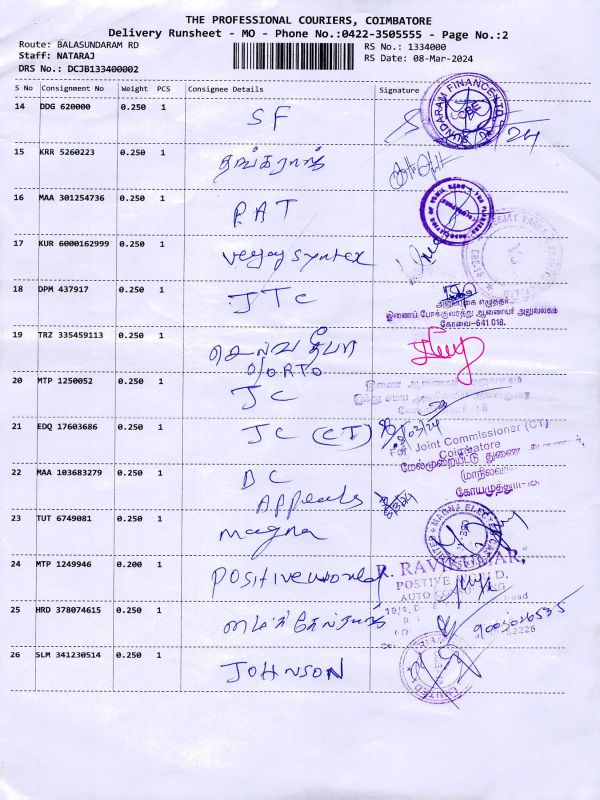 THE PROFESSIONAL COURIERS, COIMBATORE
Delivery Runsheet - MO - Phone No.:0422-3505555 - Page No.:2
Route: BALASUNDARAM RD
RS No.: 1334000
Staff: NATARAJ
RS Date: 08-Mar-2024
DRS No.: DCJB133400002
S No Consignment No Weight PCS Consignee Details Signature
14 DDG 620000 0.250 1 SF
SUNDARAM FINANCE
15 KRR 5260223 0.250 1
16 MAA 301254736 0.250 1 P.A T
17 KUR 6000162999 0.250 1 veejay syntex
18 DPM 437917 0.250 1 JTC
இணைப் போக்குவரத்து ஆணையர் அலுவலகம்
கோவை-641 018.
19 TRZ 335459113 0.250 1 செல்வ தீபா
O/O RTO
20 MTP 1250052 0.250 1 JC
21 EDQ 17603686 0.250 1 JC (CT)
For Joint Commissioner (CT)
Coimbatore
மேல்முறையீட்டு துணை ஆணையர்
22 MAA 103683279 0.250 1 DC
Appeals
23 TUT 6749081 0.250 1 magna
24 MTP 1249946 0.200 1 positiveworld
R. RAVIKUMAR,
25 HRD 378074615 0.250 1
9003026535
26 SLM 341230514 0.250 1 JOHNSON